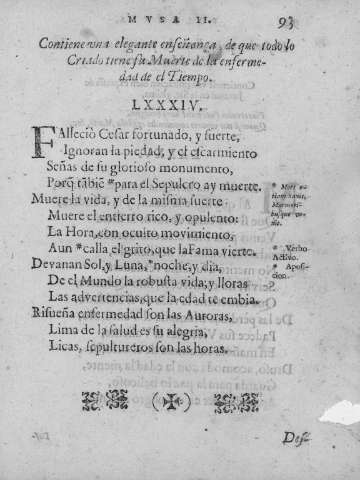 MVSA II.
93
Contiene vna elegante enseñança, de que todo lo
Criado tiene su Muerte de la enferme-
dad de el Tiempo.
LXXXIV.
FAlleciò Cesar fortunado, y fuerte,
Ignoran la piedad, y el escarmiento
Señas de su glorioso monumento,
Porq̃ tãbiẽ * para el Sepulcro ay muerte.
Muere la vida, y de la misma suerte
Muere el entierro rico, y opulento:
La Hora, con oculto movimiento,
Aun * calla el grito, que la Fama vierte.
Devanan Sol, y Luna, * noche, y dia,
De el Mundo la robusta vida; y lloras
Las advertencias, que la edad te embia.
Risueña enfermedad son las Auroras,
Lima de la salud es su alegria,
Licas, sepultureros son las horas.
* Mors
* Verbo
Activo.
* Aposi-
cion.
Des-